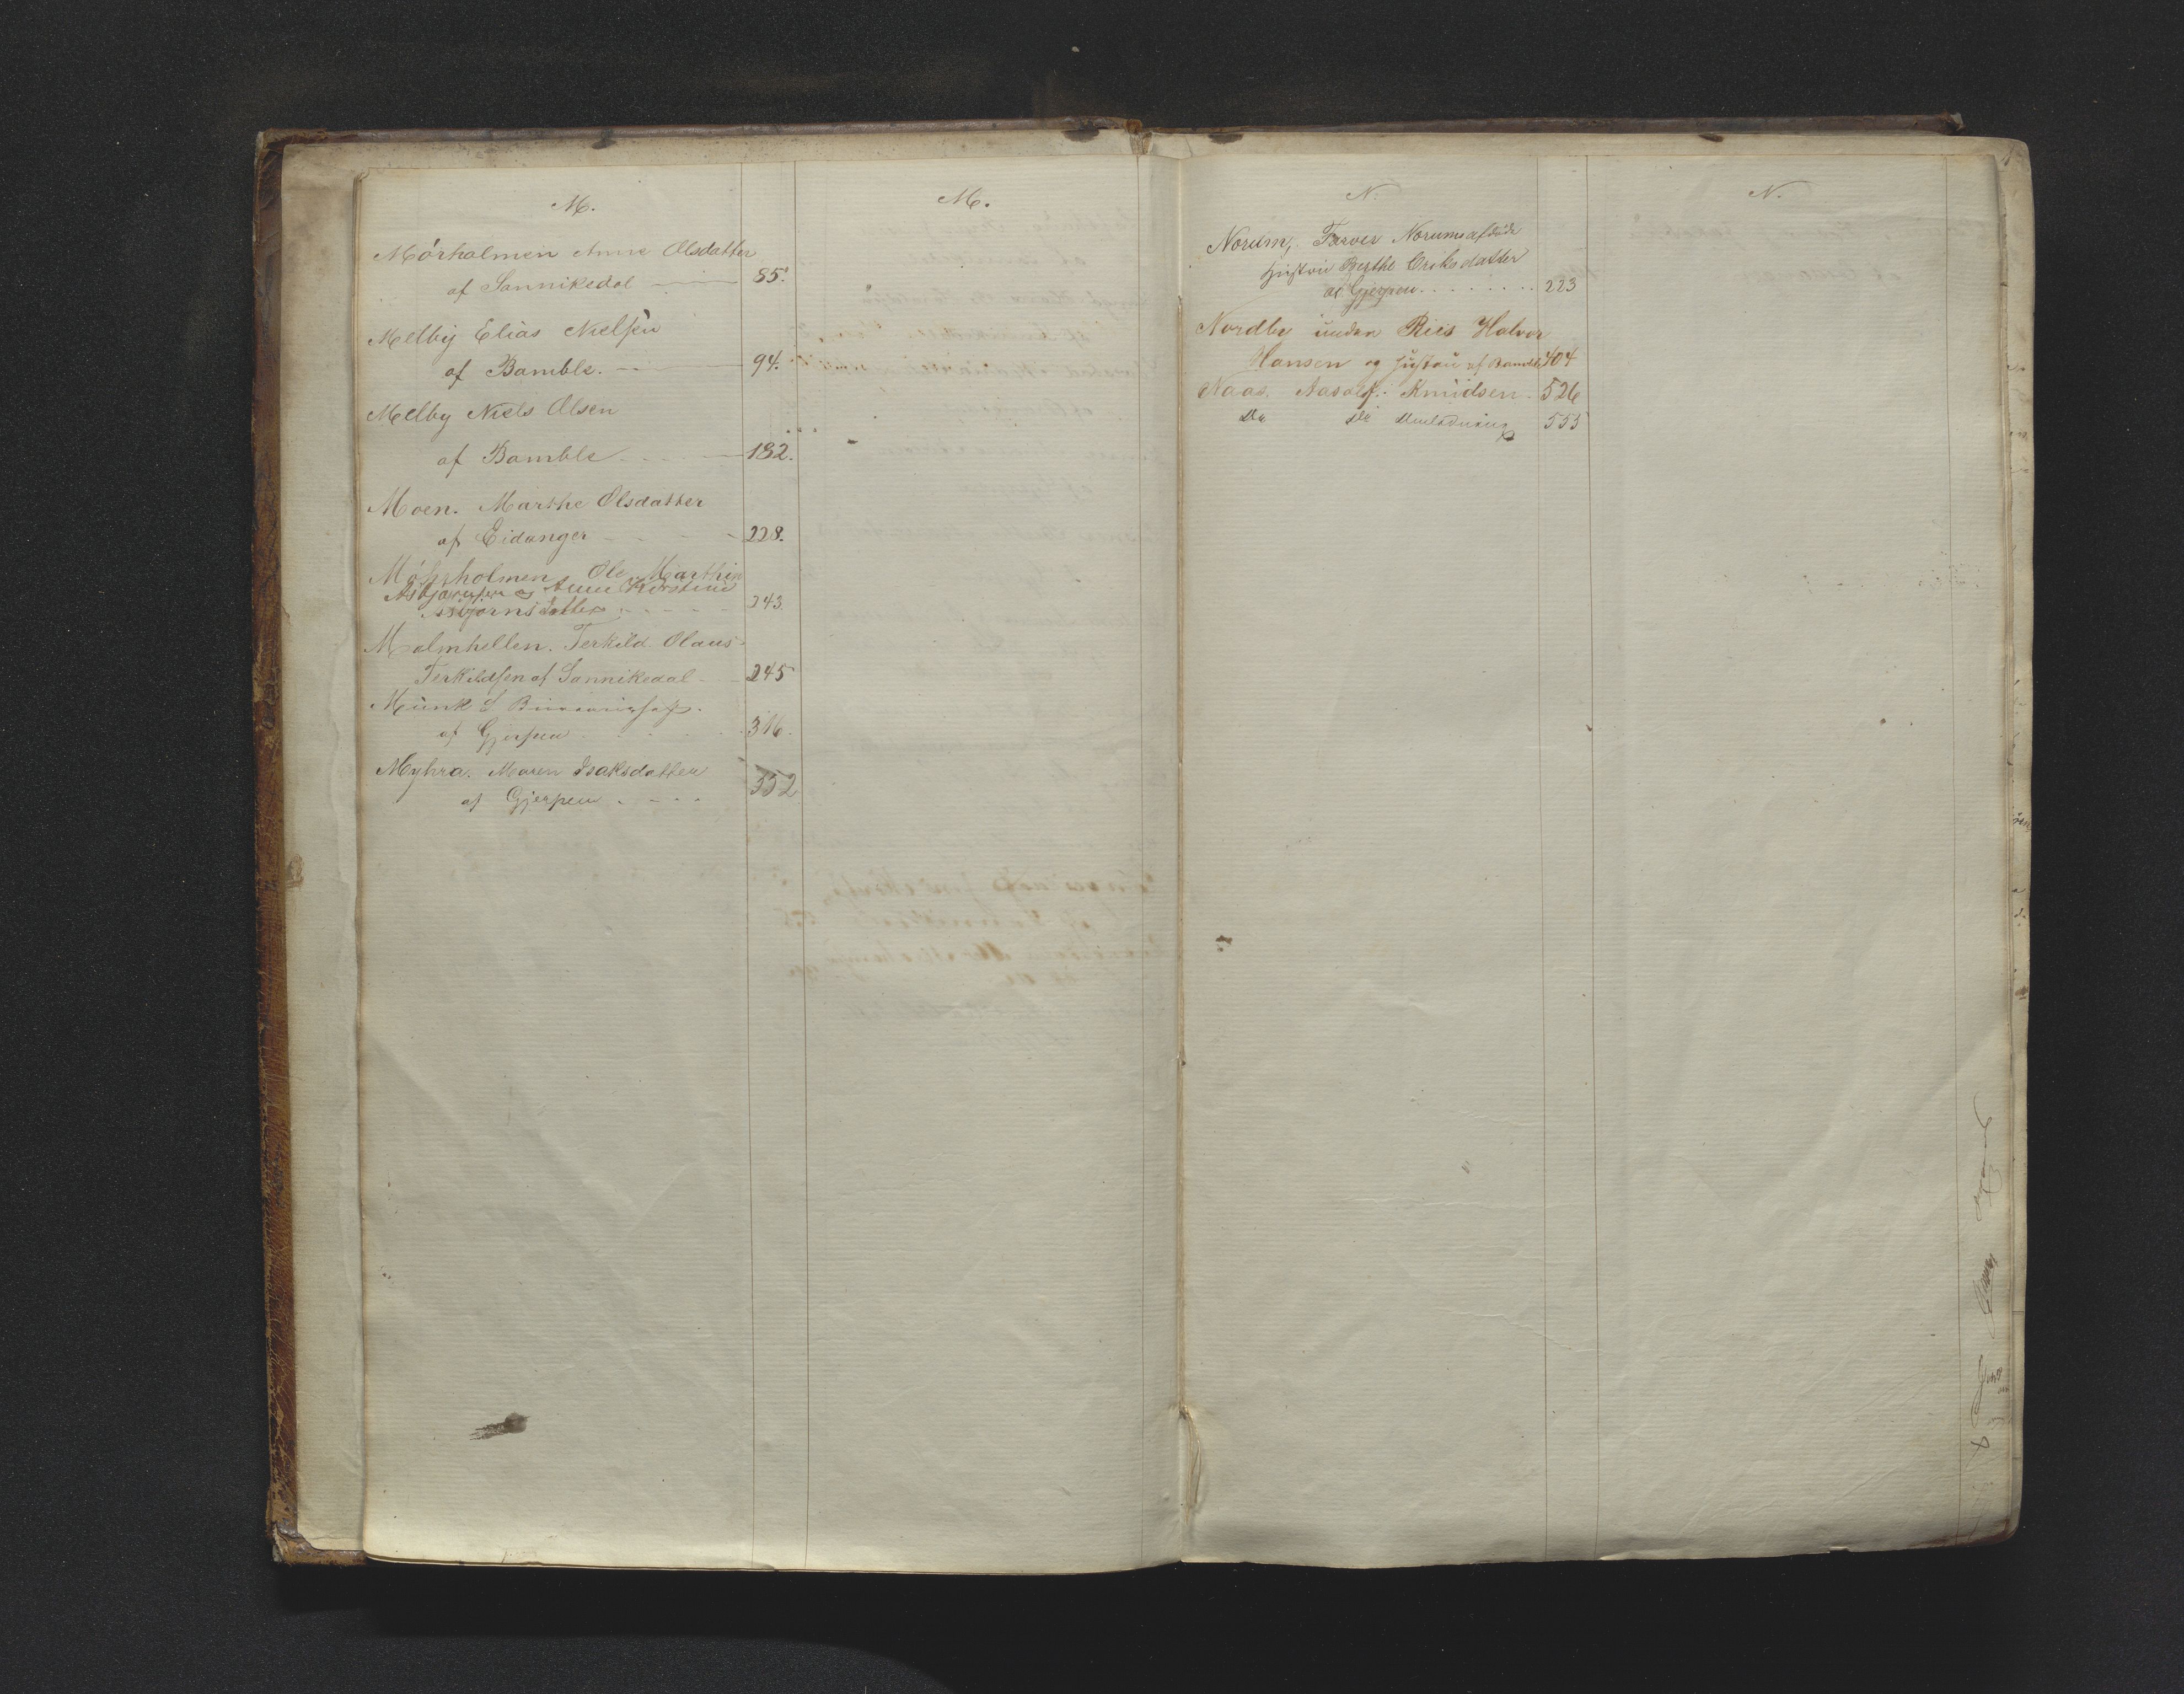 M.
Mørholmen Anne Olsdatter
af Sannikedal 85.
Melbÿ Elias Nielsen
af Bamble. 94.
Melby Niels Olsen
af Bamble 182.
Moen. Marthe Olsdatter
af Eidanger 228.
Mørholmen Ole Marthin
Asbjørnsen og Anne Kirstine
Asbjørnsdatter 243.
Malmhellen. Terkild Olaus
Terkildsen af Sannikedal 245
Münk S
af Gjerpen 316.
Myhra. Maren Isaksdatter
af Gjerpen 352
M.
N.
Norum, Farver Norums afdøde
Hustru Berthe
af Gjerpen 223
Nordby under Riis Halvor
Hansen og Hustru af Bamble 404
Naas, Aasolf Knudsen 526
Do Do 555
N.